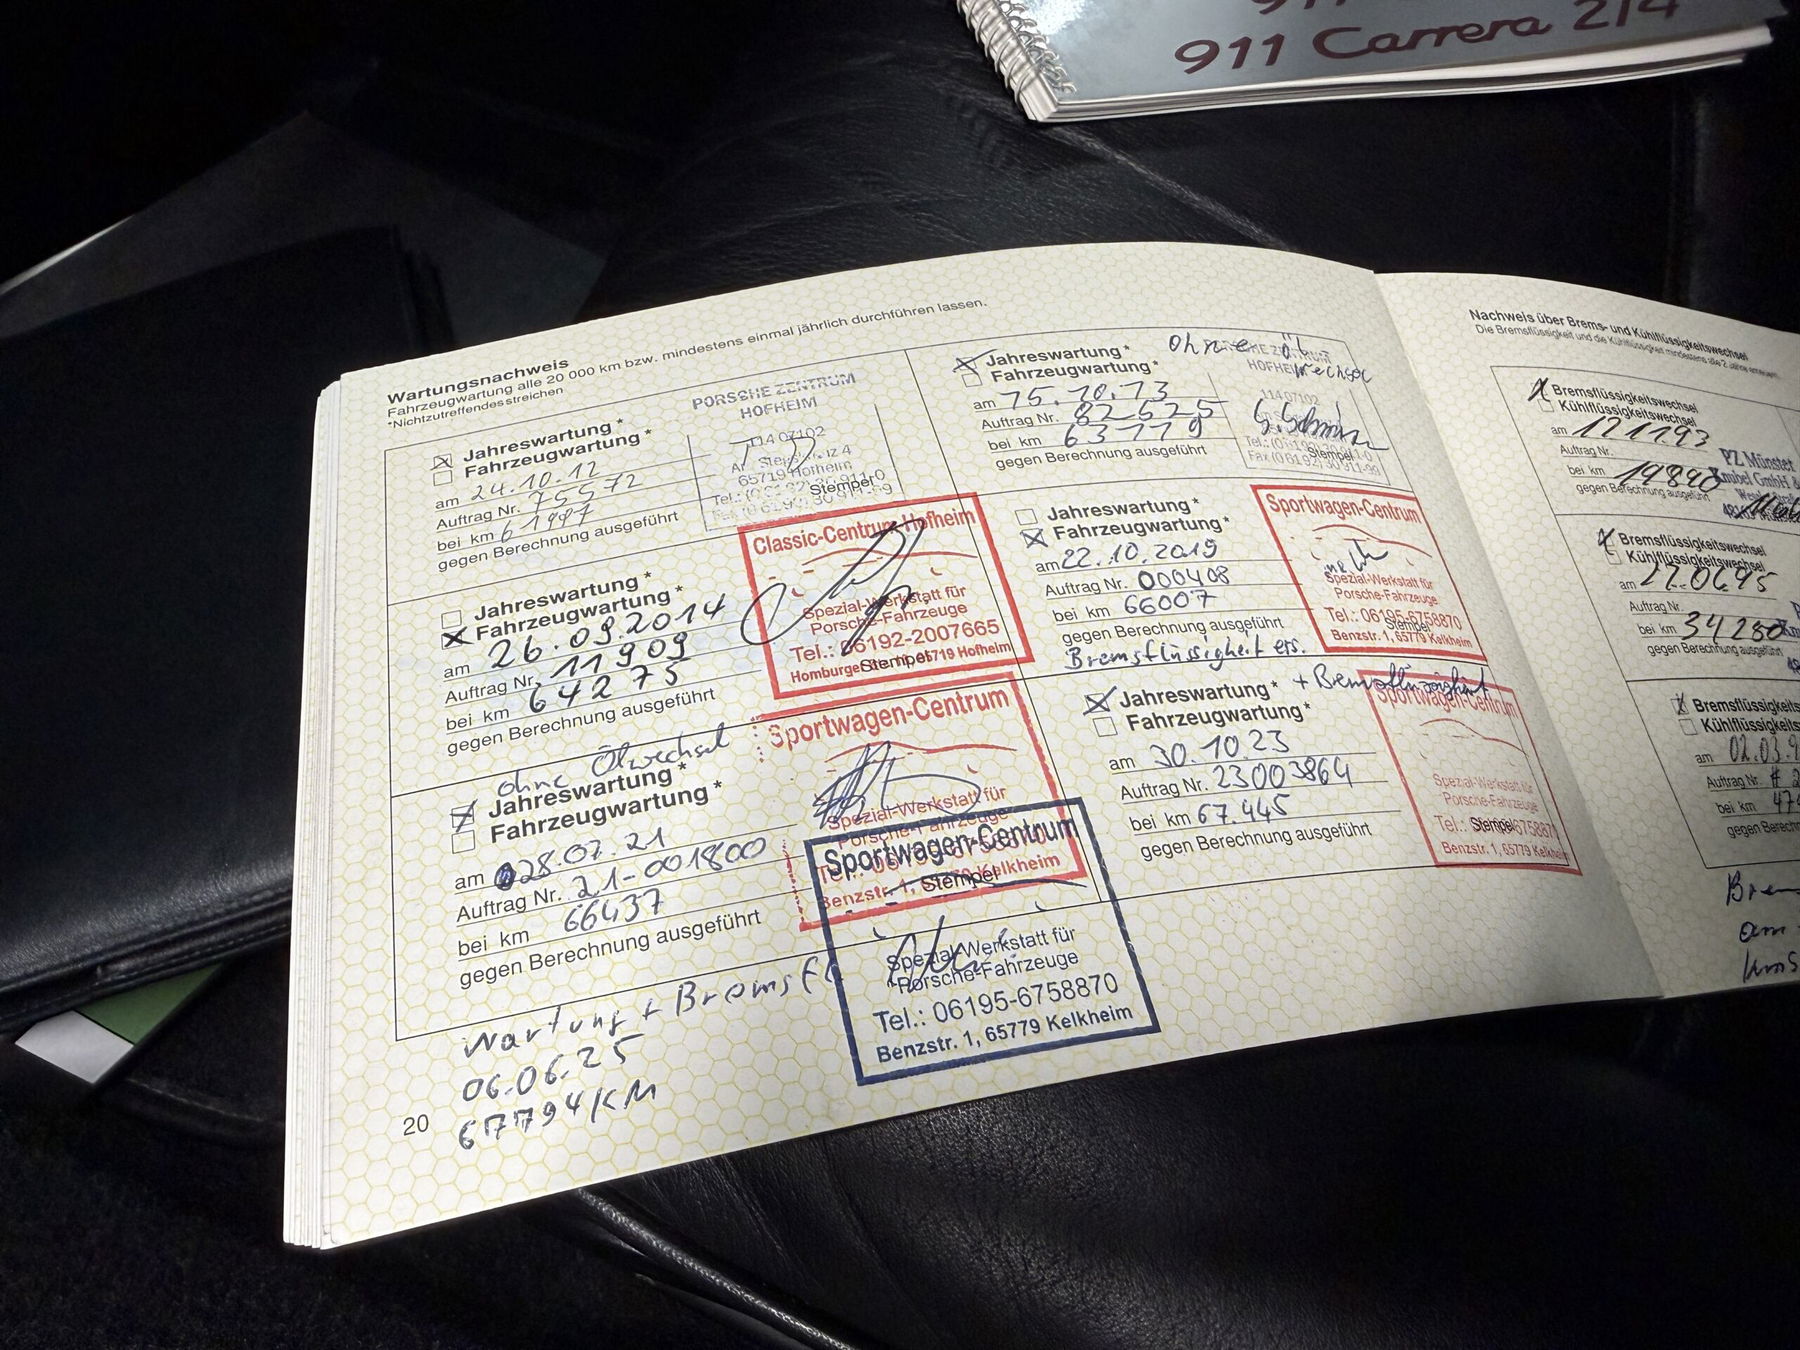 911 Carrera 2/4
Wartungsnachweis
Fahrzeugwartung alle 20 000 km bzw. mindestens einmal jährlich durchführen lassen.
*Nichtzutreffendes streichen
Jahreswartung*
Fahrzeugwartung*
am 24.10.12
Auftrag Nr. 75572
bei km 61997
gegen Berechnung ausgeführt
PORSCHE ZENTRUM
HOFHEIM
114 07102
65719 Hofheim
Stempel
Jahreswartung*
Fahrzeugwartung*
am 26.09.2014
Auftrag Nr. 11909
bei km 64275
gegen Berechnung ausgeführt
Classic-Centrum Hofheim
Spezial-Werkstatt für
Porsche-Fahrzeuge
Tel.: 06192-2007665
Stempel
65719 Hofheim
ohne Ölwechsel
Jahreswartung*
Fahrzeugwartung*
am 28.07.21
Auftrag Nr. 21-001800
bei km 66437
gegen Berechnung ausgeführt
Sportwagen-Centrum
Spezial-Werkstatt für
Porsche-Fahrzeuge
Stempel
Benzstr. 1, 65779 Kelkheim
Wartung + Bremsfl
06.06.25
67794 KM
Sportwagen-Centrum
Spezial-Werkstatt für
Porsche-Fahrzeuge
Tel.: 06195-6758870
Benzstr. 1, 65779 Kelkheim
20
ohne Öl
wechsel
Jahreswartung*
Fahrzeugwartung*
am 15.10.13
Auftrag Nr. 82525
bei km 63119
gegen Berechnung ausgeführt
HOFHEIM
114 07102
Stempel
Jahreswartung*
Fahrzeugwartung*
am 22.10.2019
Auftrag Nr. 000408
bei km 66007
gegen Berechnung ausgeführt
Bremsflüssigkeit ers.
Sportwagen-Centrum
Spezial-Werkstatt für
Porsche-Fahrzeuge
Tel.: 06195-6758870
Stempel
Benzstr. 1, 65779 Kelkheim
Jahreswartung* + Bremsflüssigkeit
Fahrzeugwartung*
am 30.10.23
Auftrag Nr. 23003864
bei km 67.445
gegen Berechnung ausgeführt
Sportwagen-Centrum
Spezial-Werkstatt für
Porsche-Fahrzeuge
Tel.:
Stempel
Benzstr. 1, 65779 Kelkheim
Nachweis über Brems- und Kühlflüssigkeitswechsel
Die Bremsflüssigkeit und die Kühlflüssigkeit mindestens alle 2 Jahre erneuern.
Bremsflüssigkeitswechsel
Kühlflüssigkeitswechsel
am 121193
Auftrag Nr.
bei km 19890
gegen Berechnung ausgeführt
PZ Münster
Bremsflüssigkeitswechsel
Kühlflüssigkeitswechsel
am 27.0695
Auftrag Nr.
bei km 34280
gegen Berechnung ausgeführt
Bremsflüssigkeits
Kühlflüssigkeits
am 02.03.9
Auftrag Nr.
bei km 47
gegen Berechn
am